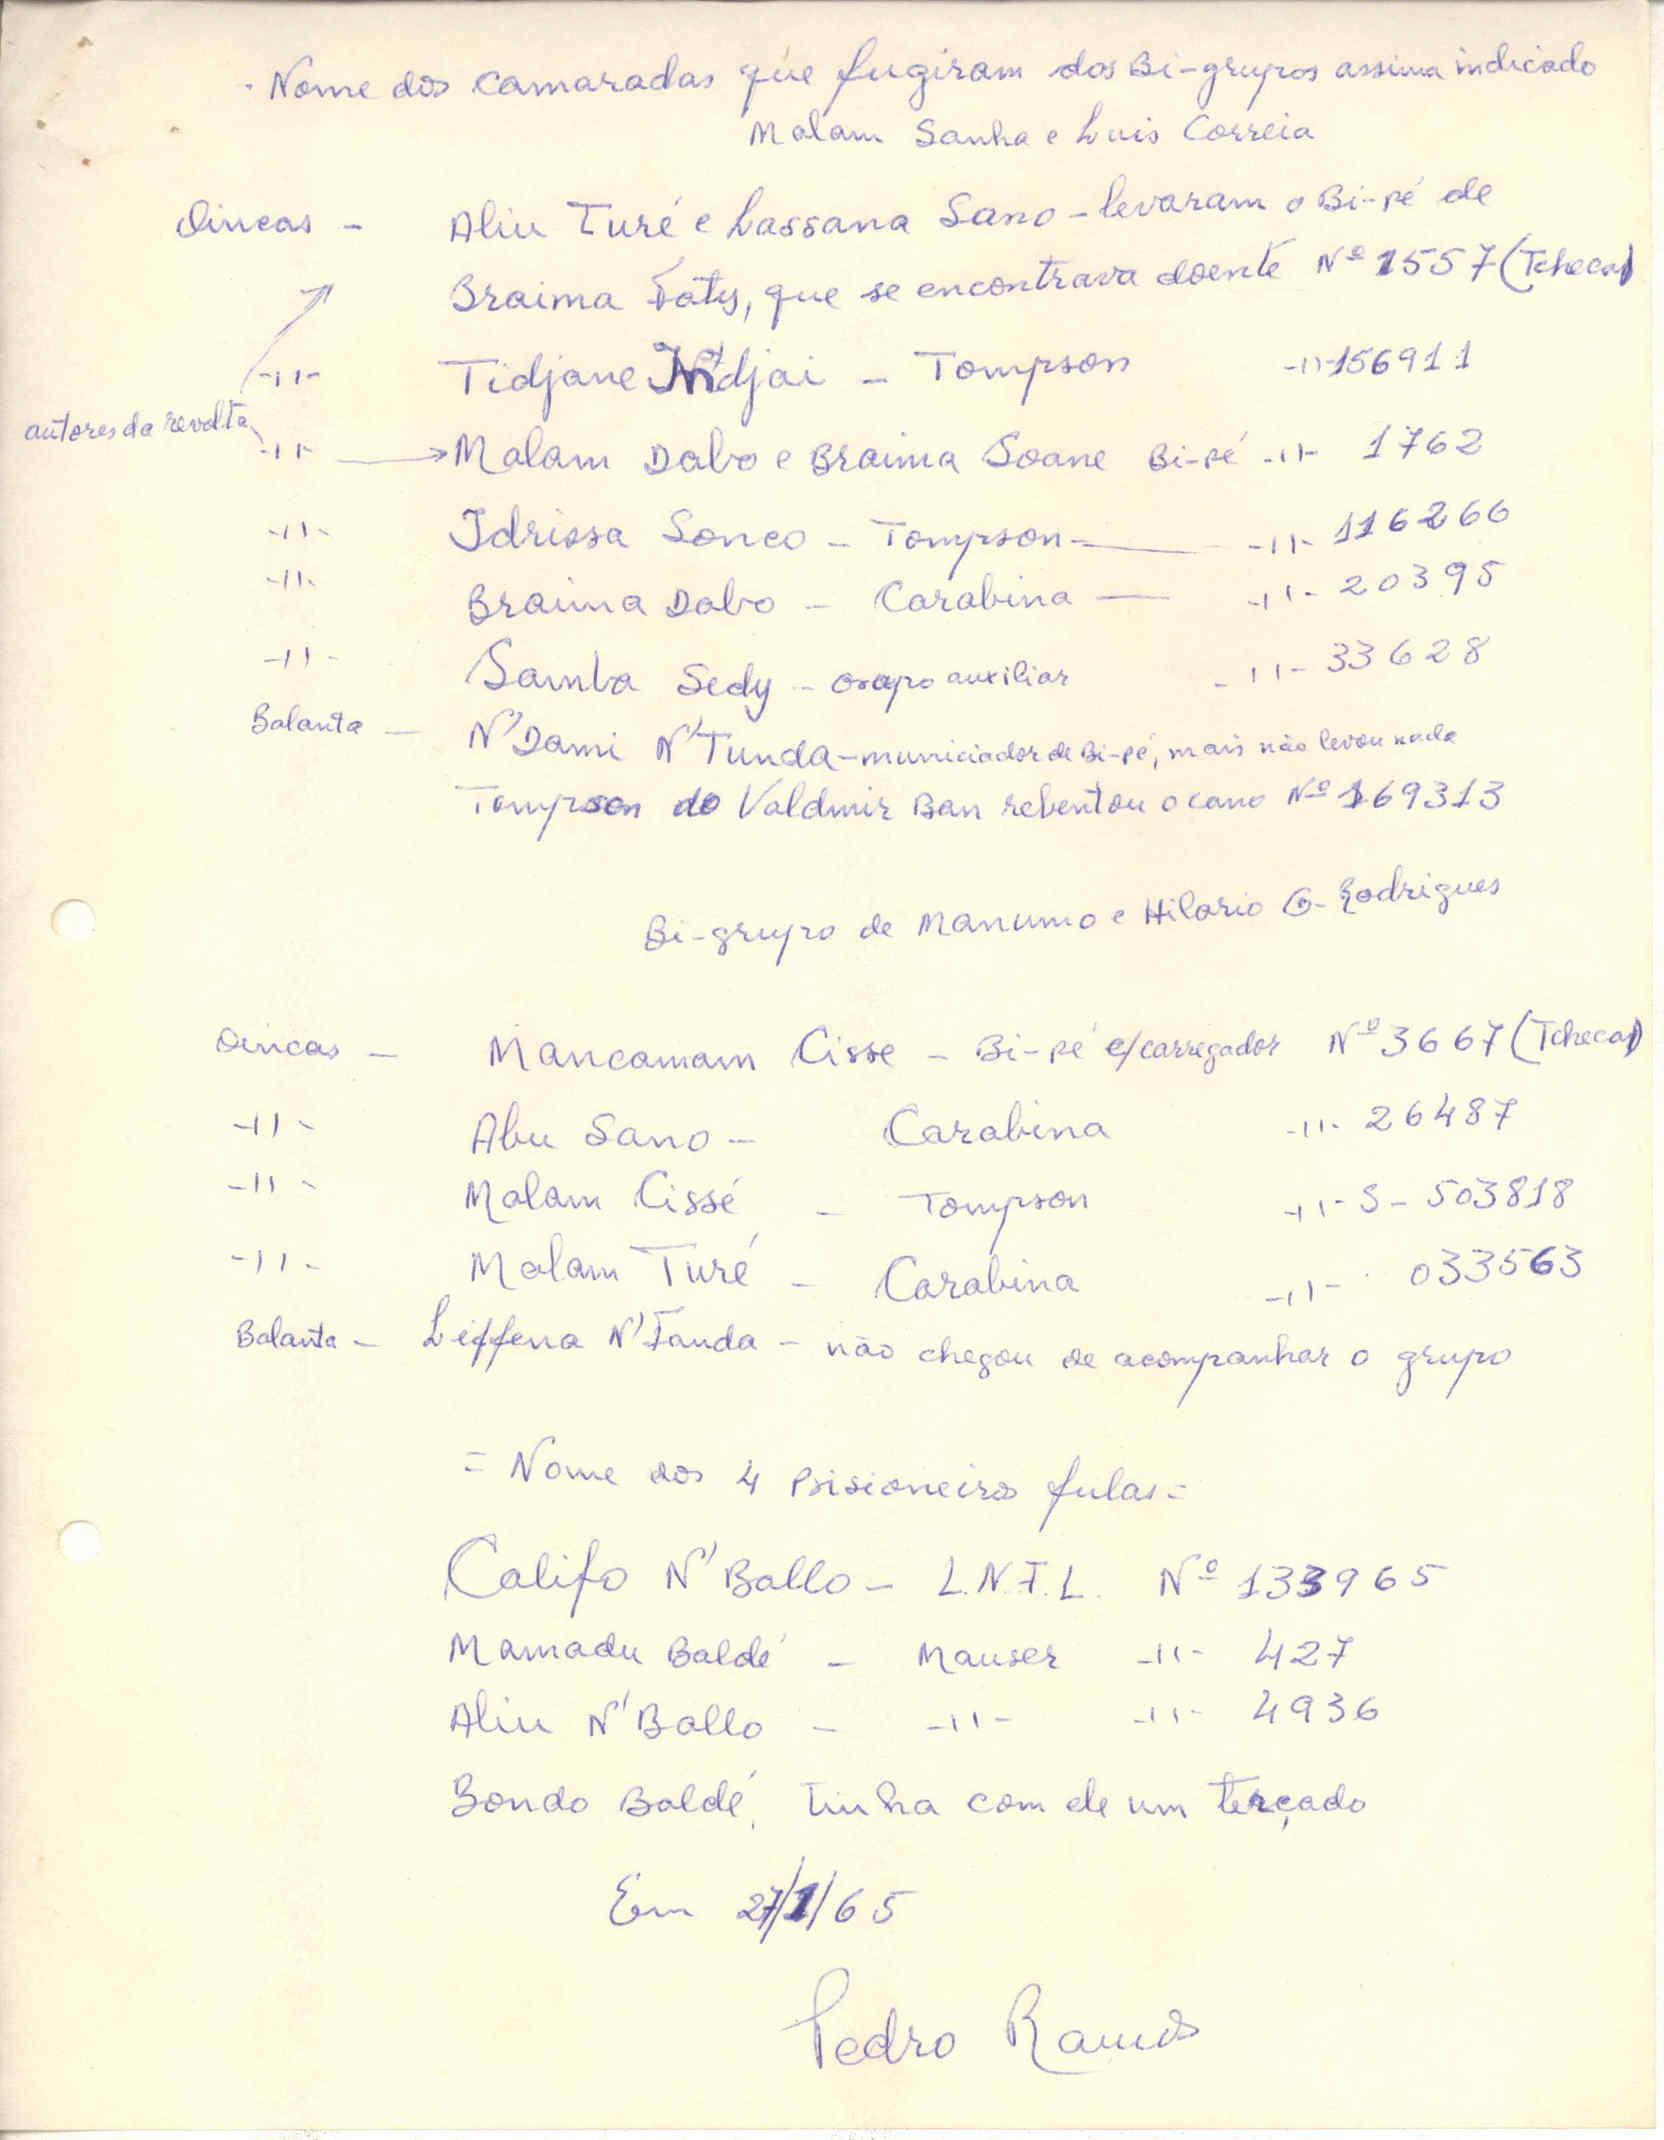 Nome dos camaradas que fugiram dos Bi-grupos assima indicado
Malam Sanha e Luis Correia
Oincas - Aliu Turé e Lassana Sano - levaram o Bi-pé de
Braima Faty, que se encontrava doente Nº 1557 (Tchecas)
-11- Tidjane N'djai - Tompson -11- 156911
autores da revolta
-11- Malam Dabo e Braima Soane Bi-pé -11- 1762
-11- Idrissa Sonco - Tompson - -11- 116266
-11- Braima Dabo - Carabina - -11- 20395
-11- Samba Sedy - Grupo auxiliar -11- 33628
Balanta - N'Dami N'Tunda - municiador de Bi-pé, mais não levou nada
Tompson do Valdmir Ban rebentou o cano Nº 169313
Bi-grupo de Manumo e Hilario G. Rodrigues
Oincas - Mancamam Cisse - Bi-pé c/carregador Nº 3667 (Tchecas)
-11- Abu Sano - Carabina -11- 26487
-11- Malam Cissé - Tompson -11- S- 503818
-11- Malam Turé - Carabina -11- 033563
Balanta - Leffena N'Fanda - não chegou de acompanhar o grupo
= Nome dos 4 Prisioneiros fulas =
Califo N'Ballo - L.N.F.L. Nº 133965
Mamadu Baldé - Mauser -11- 427
Aliu N'Ballo - -11- -11- 4936
Bondo Baldé, tinha com ele um terçado
Em 27/1/65
Pedro Ramos